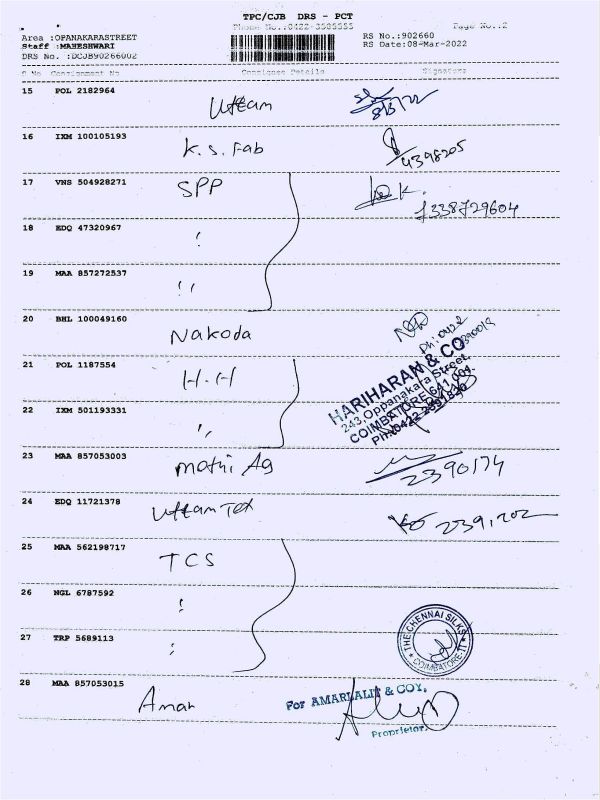 TPC/CJB DRS - PCT
Phone No.:0422-3585555
Page No.:2
Area :OPANAKARASTREET
Staff :MAHESHWARI
DRS No. :DCJB90266002
RS No.:902660
RS Date:08-Mar-2022
S No Consignment No Consignee Details Signature
15 POL 2182964
Uttam
8/3/22
16 IXM 100105193
K.S. Fab
4398205
17 VNS 504928271
SPP
7338729604
18 EDQ 47320967
19 MAA 857272537
20 BHL 100049160
Nakoda
21 POL 1187554
H.H
HARIHARAN & CO
243, Oppanakara Street,
COIMBATORE 641 001.
22 IXM 501193331
23 MAA 857053003
mathi Ag
2390174
24 EDQ 11721378
Uttam Tex
2391202
25 MAA 562198717
TCS
26 NGL 6787592
27 TRP 5689113
THE CHENNAI SILKS
COIMBATORE-1
28 MAA 857053015
Aman
For AMARLALIT & COY.
Proprietor.